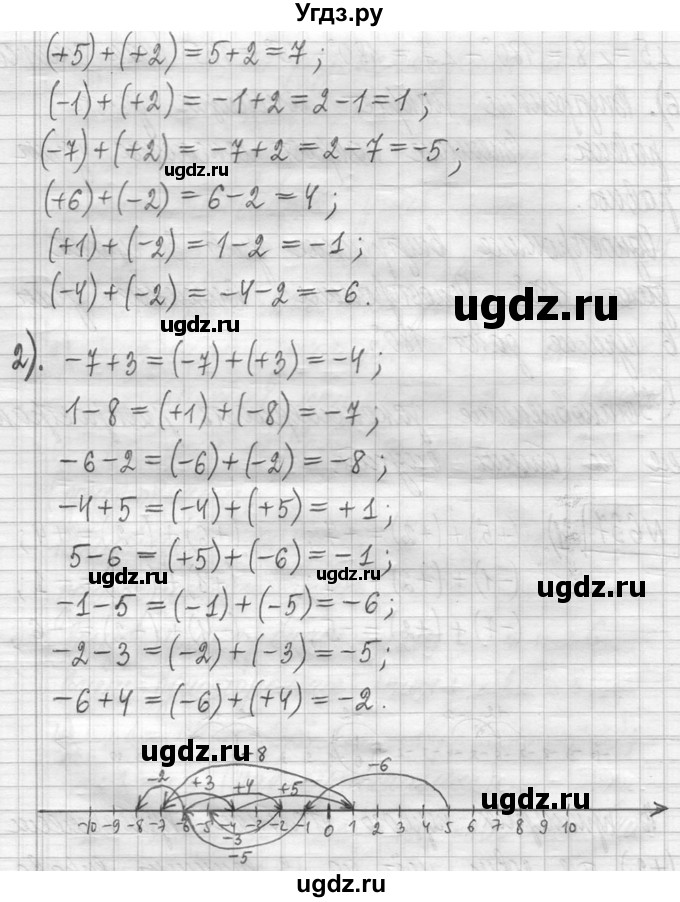 Угдз.ру
(+5)+(+2)=5+2=7;
(-1)+(+2)=-1+2=2-1=1;
(-7)+(+2)=-7+2=2-7=-5;
ugdz.ru
(+6)+(-2)=6-2=4;
(+1)+(-2)=1-2=-1;
(-4)+(-2)=-4-2=-6.
ugdz.ru
ugdz.ru
2). -7+3=(-7)+(+3)=-4;
1-8=(+1)+(-8)=-7;
-6-2=(-6)+(-2)=-8;
ugdz.ru
-4+5=(-4)+(+5)=+1;
5-6=(+5)+(-6)=-1;
ugdz.ru ugdz.ru ugdz.ru
-1-5=(-1)+(-5)=-6;
-2-3=(-2)+(-3)=-5;
-6+4=(-6)+(+4)=-2.
ugdz.ru
-8
-2 +3 +4 +5 -6
ugdz.ru
-10 -9 -8 -7 -6 -5 -4 -3 -2 -1 0 1 2 3 4 5 6 7 8 9 10
-3
-5
ugdz.ru